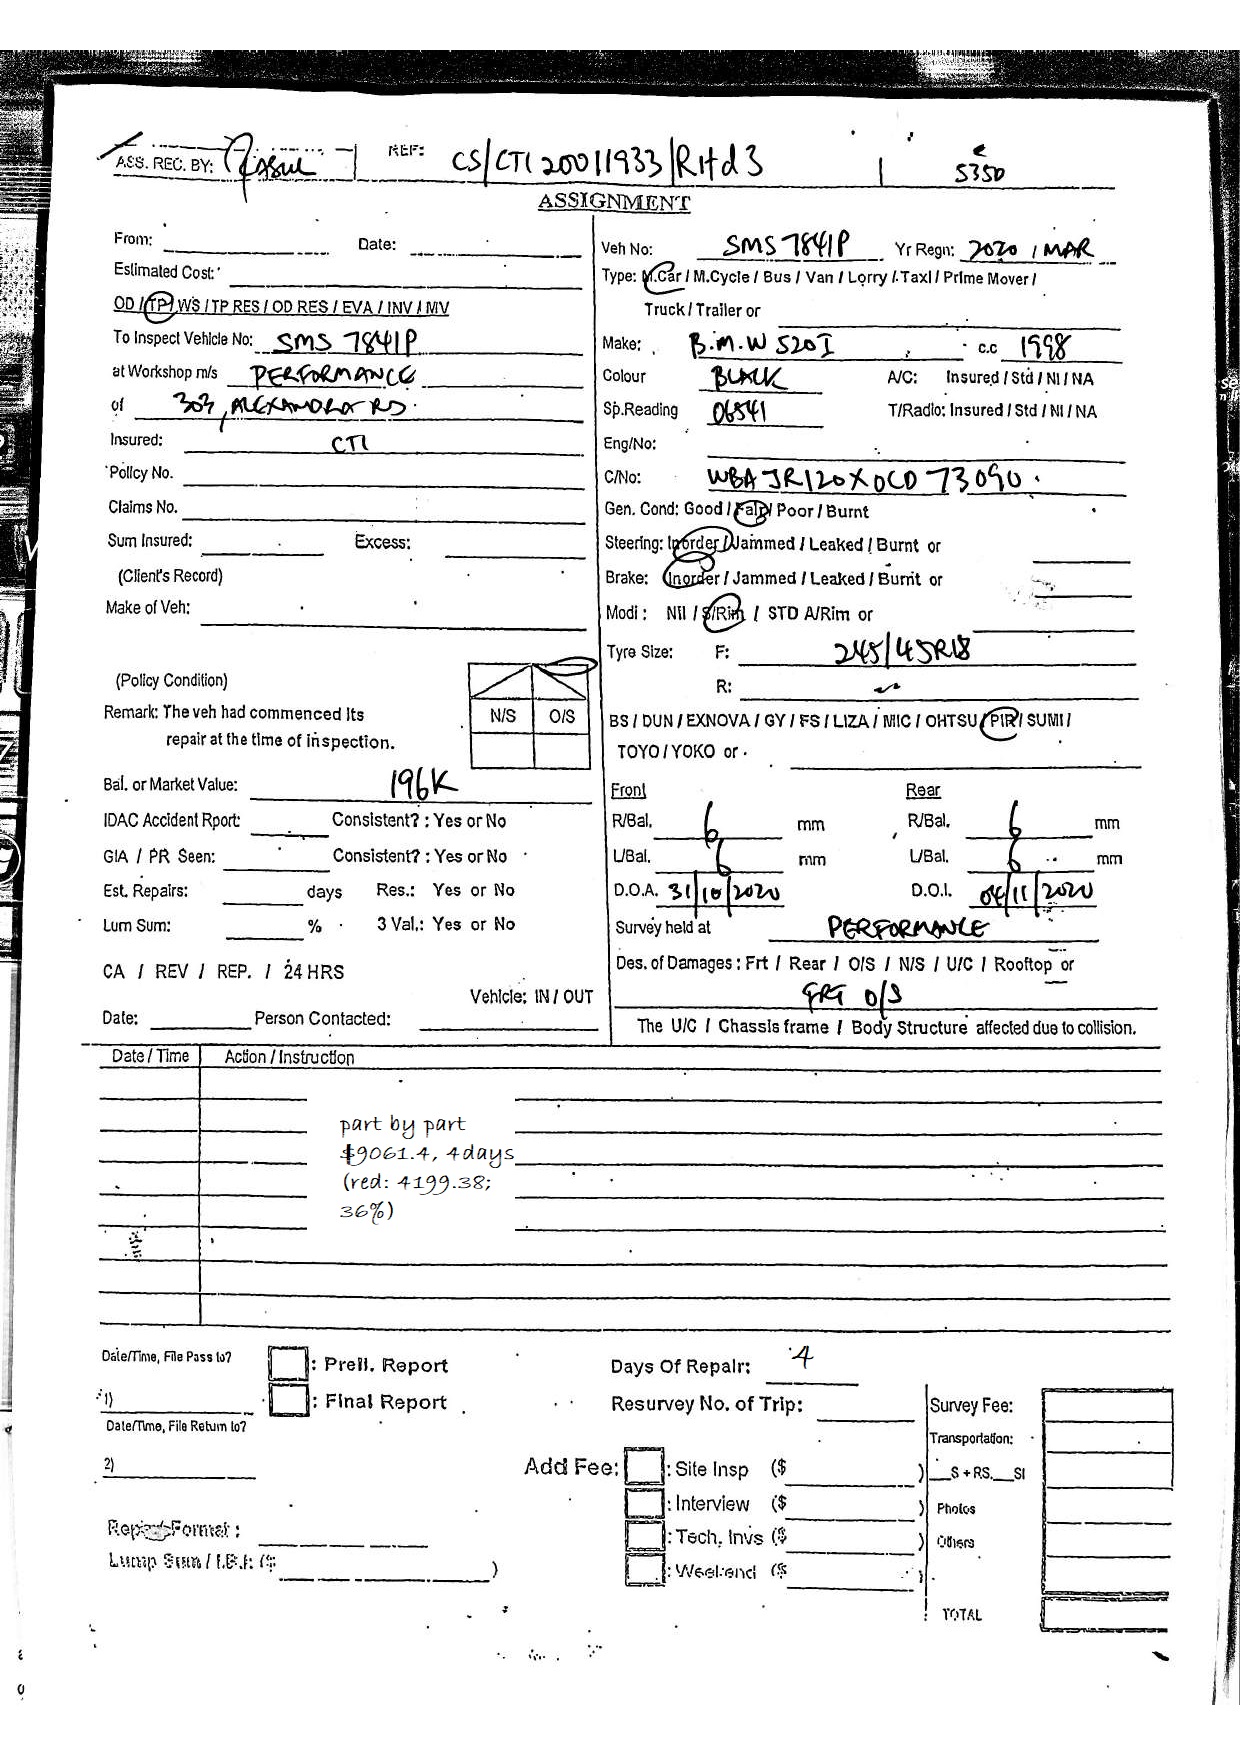 ASS. REC. BY:
REF: CS/CTI 20011933/RHd3
5350
ASSIGNMENT
From: Date:
Estimated Cost:
OD / TP / WS / TP RES / OD RES / EVA / INV / MV
To Inspect Vehicle No: SMS 7841P
at Workshop m/s PERFORMANCE
of 303, ALEXANDRA RD.
Insured: CTI
Policy No.
Claims No.
Sum Insured: Excess:
(Client's Record)
Make of Veh:
(Policy Condition)
Remark: The veh had commenced its
repair at the time of inspection.
N/S O/S
Bal. or Market Value: 196K
IDAC Accident Rport: Consistent? : Yes or No
GIA / PR Seen: Consistent? : Yes or No
Est. Repairs: days Res.: Yes or No
Lum Sum: % 3 Val.: Yes or No
CA / REV / REP. / 24 HRS
Vehicle: IN / OUT
Date: Person Contacted:
Veh No: SMS 7841P Yr Regn: 2020 / MAR
Type: M.Car / M.Cycle / Bus / Van / Lorry / Taxi / Prime Mover /
Truck / Trailer or
Make: B.M.W 520I c.c 1998
Colour BLACK A/C: Insured / Std / NI / NA
Sp.Reading 06541 T/Radio: Insured / Std / NI / NA
Eng/No:
C/No: WBAJR120X0CD73090.
Gen. Cond: Good / Fair / Poor / Burnt
Steering: Inorder / Jammed / Leaked / Burnt or
Brake: Inorder / Jammed / Leaked / Burnt or
Modi : Nil / S/Rim / STD A/Rim or
Tyre Size: F: 245/45R18
R: ~
BS / DUN / EXNOVA / GY / FS / LIZA / MIC / OHTSU / PIR / SUMI /
TOYO / YOKO or
Front Rear
R/Bal. 6 mm R/Bal. 6 mm
L/Bal. 6 mm L/Bal. 6 mm
D.O.A. 31/10/2020 D.O.I. 04/11/2020
Survey held at PERFORMANCE
Des. of Damages : Frt / Rear / O/S / N/S / U/C / Rooftop or
O/S
The U/C / Chassis frame / Body Structure affected due to collision.
Date / Time Action / Instruction
part by part
$9061.4, 4days
(red: 4199.38;
36%)
Date/Time, File Pass to?
1)
Date/Time, File Return to?
2)
: Prell. Report
: Final Report
Days Of Repair: 4
Resurvey No. of Trip:
Add Fee: : Site Insp ($ )
: Interview ($ )
: Tech. Invs ($ )
: Weekend ($ )
Survey Fee:
Transportation:
__S + RS.__SI
Photos
Others
TOTAL
Report Format :
Lump Sum / I.B.I: ($ )